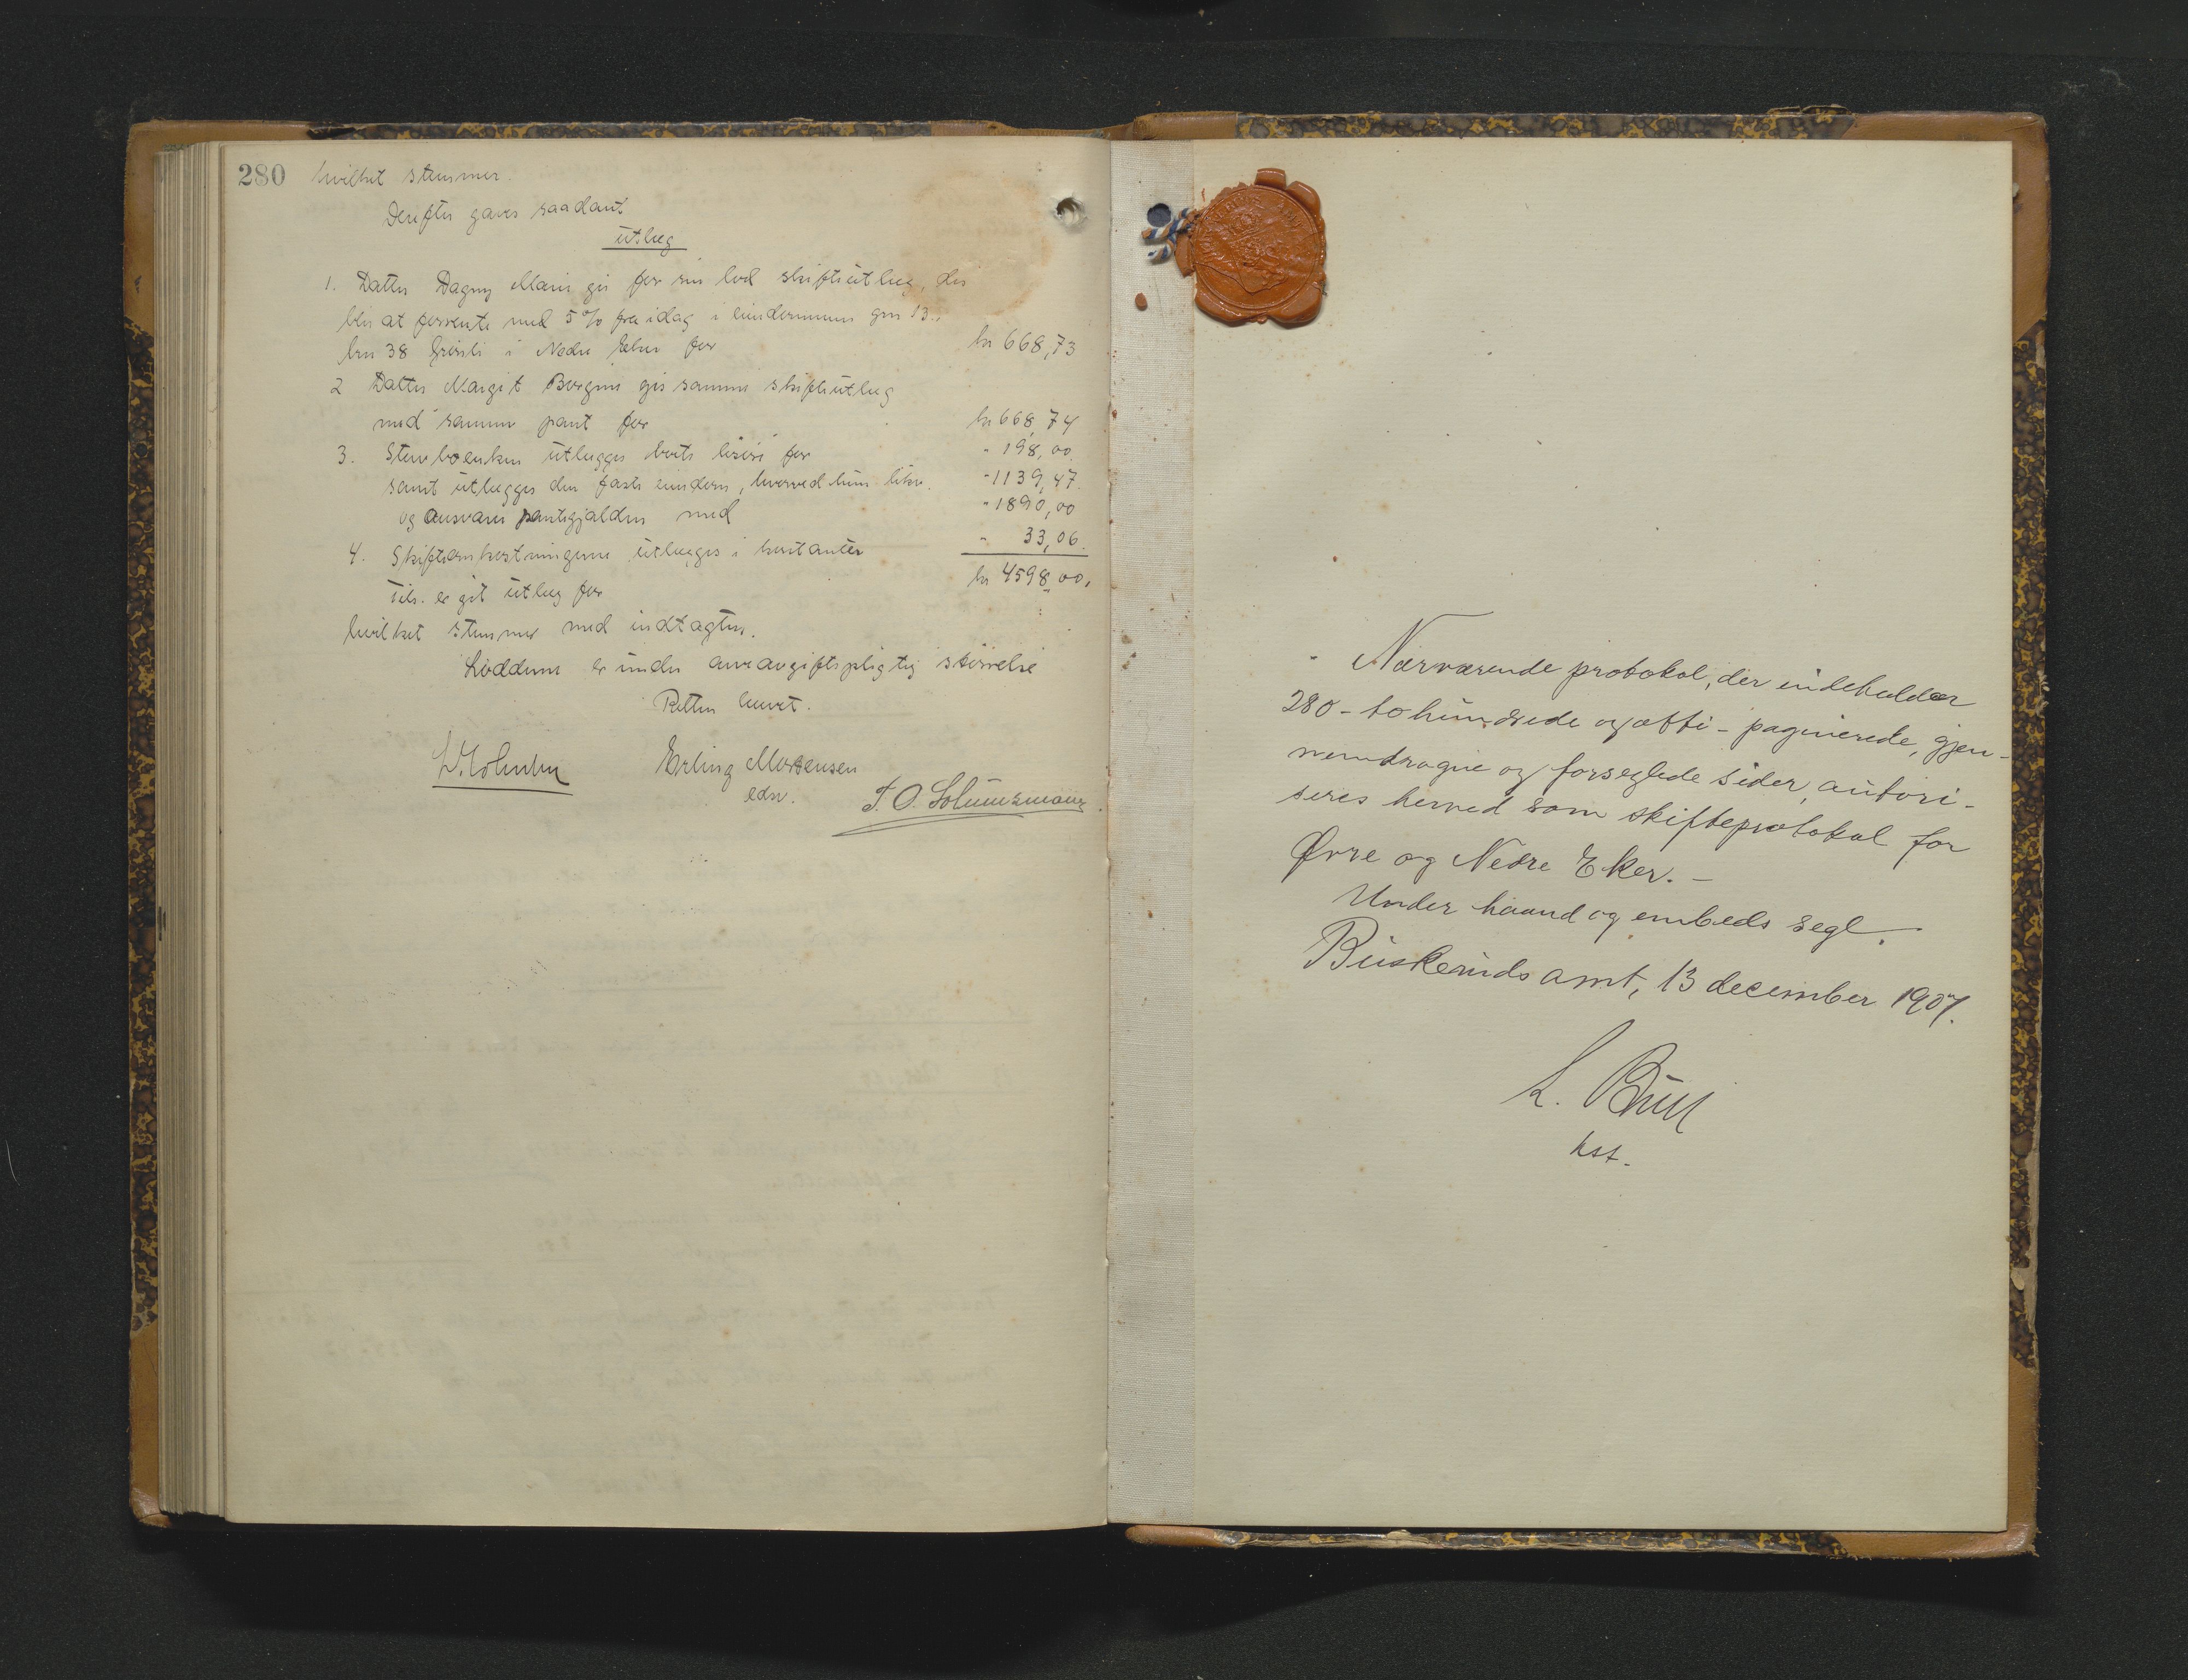 280 hvilket stemmer.
Derefter gaves saadant
utlæg
1. Datter Dagny Marie gis for sin lod skifteutlæg, der
blir at forrente med 5% fra idag i eiendommen gnr 13.,
brn 38 i Nedre Eker for kr 668,73
2 Datter Margit Borgine gis samme skifteutlæg
med samme pant for kr 668,74
3. Stervboenken utlægges boets løsøre for " 198,00
samt utlægges den faste eiendom, hvorved hun
" 1139,47.
og ansvarer pantegjælden med " 1890,00
4. Skifteomkostningerne utlægges i kontanter " 33,06.
Tils. er git utlæg for kr 4598,00.
hvilket stemmer med indtægten.
Loddene er under arveavgiftspligtig størrelse
Retten hævet.
Erling Mortensen
edsv.
T. O. Solumsmoen
Nærværende protokol, der indeholder
280 - to hundrede og otti - paginerede, gjen-
nemdragne og forseglede sider, autori-
seres herved som skifteprotokol for
Øvre og Nedre Eker. -
Under haand og embeds segl.
Buskeruds amt, 13 december 1907.
L. Bull
kst.